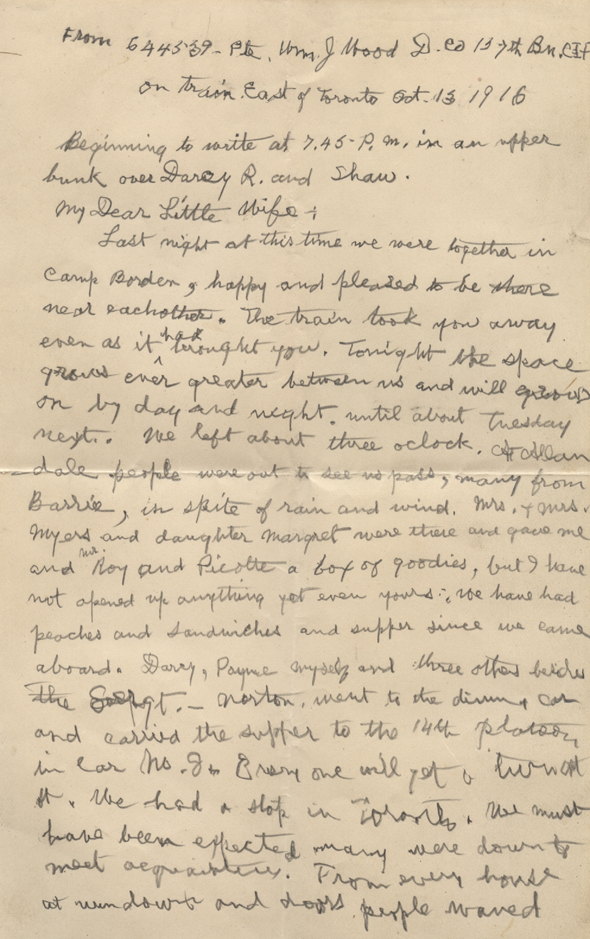 From 644539 - Pte. Wm. J Wood D. Co 157th Bn. CEF
on train East of Toronto Oct. 13 1916
Beginning to write at 7.45 P.M. in an upper
bunk over Darcy R. and Shaw.
My Dear Little Wife:
Last night at this time we were together in
Camp Borden, happy and pleased to be there
near eachother. The train took you away
even as it had brought you. Tonight the space
grows ever greater between us and will grow
on by day and night. until about Tuesday
next. We left about three oclock. At Allan
dale people were out to see us pass, many from
Barrie, in spite of rain and wind. Mrs. & Mrs.
Myers and daughter Margret were there and gave me
and Mr. Roy and Picotte a box of goodies, but I have
not opened up anything yet even yours. We have had
peaches and sandwiches and supper since we came
aboard. Darry, Payne myself and three others besides
the Sergt. - Norton. went to the dining car
and carried the supper to the 14th platoon
in Car No. Every one will get a turn at
it. We had a stop in Toronto. We must
have been expected many were down to
meet acquaintens. From every house
at windows and doors people waved